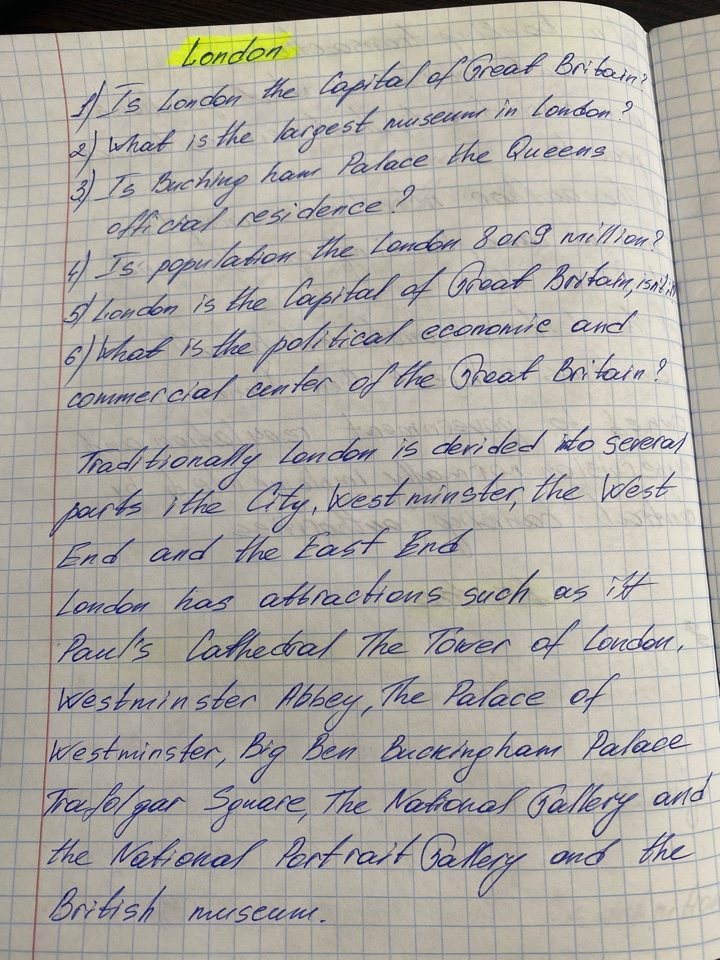 London
1) Is London the Capital of Great Britain?
2) What is the largest museum in London?
3) Is Buching ham Palace the Queens
official residence?
4) Is population the London 8 or 9 million?
5) London is the Capital of Great Britain, isn't it
6) What is the political economic and
commercial center of the Great Britain?
Traditionally London is devided into several
parts ithe City, Westminster, the West
End and the East End
London has attractions such as
Paul's Cathedral The Tower of London,
Westminster Abbey, The Palace of
Westminster, Big Ben Buckingham Palace
Trafolgar Sguare, The National Gallery and
the National Portrait Gallery and the
British museum.